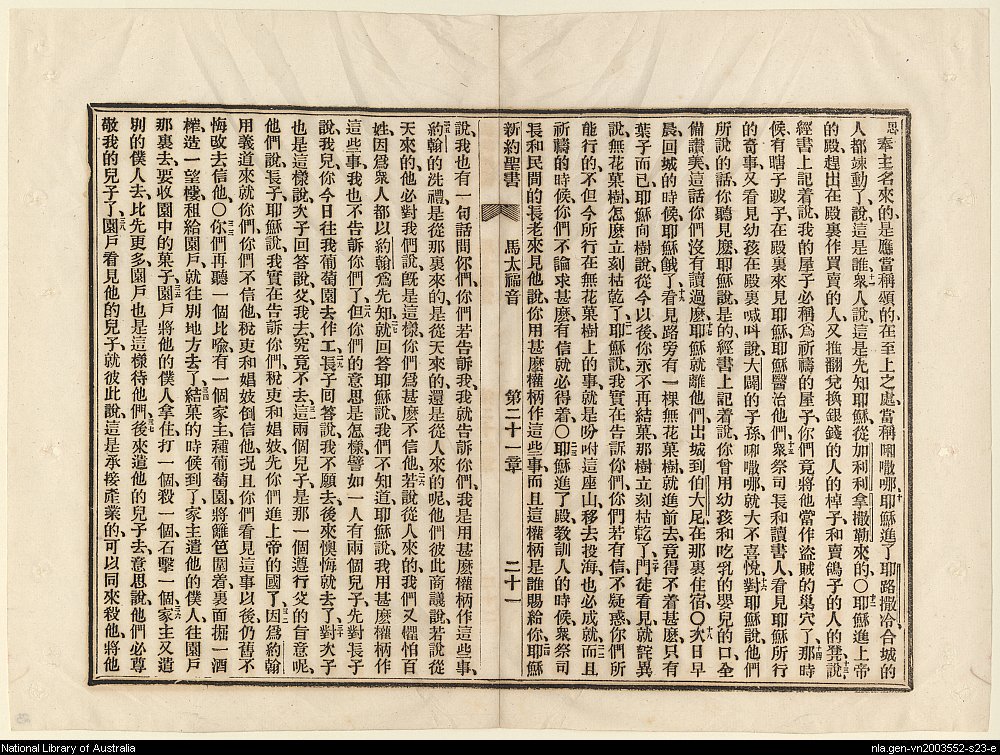 思奉主名來的是應當稱頌的在至上之處當稱㗌囇哪十耶穌進了耶路撒冷合城的
人都竦動了說這是誰十一衆人說這是先知耶穌從加利利拿撒勒來的〇十二耶穌進上帝
的殿趕出在殿裏作買賣的人又推翻兌換銀錢的人的棹子和賣鴿子的人的凳十三說
經書上記着說我的屋子必稱爲祈禱的屋子你們竟將他當作盜賊的巢穴了十四那時
候有瞎子跛子在殿裏來見耶穌耶穌醫治他們十五衆祭司長和讀書人看見耶穌所行
的奇事又看見幼孩在殿裏喊呌說大闢的子孫㗌囇哪就大不喜悅十六對耶穌說他們
所說的話你聽見麼耶穌說是的經書上記着說你曾用幼孩和吃乳的嬰兒的口全
備讚美這話你們沒有讀過麼十七耶穌就離他們出城到伯大尼在那裏住宿〇十八次日早
晨回城的時候耶穌餓了十九看見路旁有一棵無花菓樹就進前去竟得不着甚麼只有
葉子而已耶穌向樹說從今以後你永不再結菓那樹立刻枯乾了二十門徒看見就詫異
說無花菓樹怎麼立刻枯乾了二一耶穌說我實在告訴你們你們若有信不疑惑你們所
能行的不但今所行在無花菓樹上的事就是吩咐這座山移去投海也必成就二二而且
祈禱的時候你們不論求甚麼有信就必得着〇二三耶穌進了殿教訓人的時候衆祭司
長和民間的長老來見他說你用甚麼權柄作這些事而且這權柄是誰賜給你二四耶穌
新約聖書 馬太福音 第二十一章 二十一
說我也有一句話問你們你們若告訴我我就告訴你們我是用甚麼權柄作這些事
二五約翰的洗禮是從那裏來的是從天來的還是從人來的呢他們彼此商議說若說從
天來的他必對我們說旣是這樣你們爲甚麼不信他二六若說從人來的我們又懼怕百
姓因爲衆人都以約翰爲先知二七就回答耶穌說我們不知道耶穌說我用甚麼權柄作
這些事我也不告訴你們了二八但你們的意思是怎樣譬如一人有兩個兒子先對長子
說我兒你今日往我葡萄園去作工二九長子回答說我不願去後來懊悔就去了三十對次子
也是這樣說次子回答說父我去究竟不去三一這兩個兒子是那一個遵行父的旨意呢
他們說長子耶穌說我實在告訴你們稅吏和娼妓先你們進上帝的國了三二因爲約翰
用義道來就你們你們不信他稅吏和娼妓倒信他况且你們看見這事以後仍舊不
悔改去信他〇三三你們再聽一個比喩有一個家主種葡萄園將籬笆圍着裏面掘一酒
榨造一望樓租給園戶就往別地方去了三四結菓的時候到了家主遣他的僕人往園戶
那裏去要收園中的菓子三五園戶將他的僕人拿住打一個殺一個石擊一個三六家主又遣
別的僕人去比先更多園戶也是這樣待他們三七後來遣他的兒子去意思說他們必尊
敬我的兒子了三八園戶看見他的兒子就彼此說這是承接產業的可以同來殺他將他
National Library of Australia
nla.gen-vn2003552-s23-e